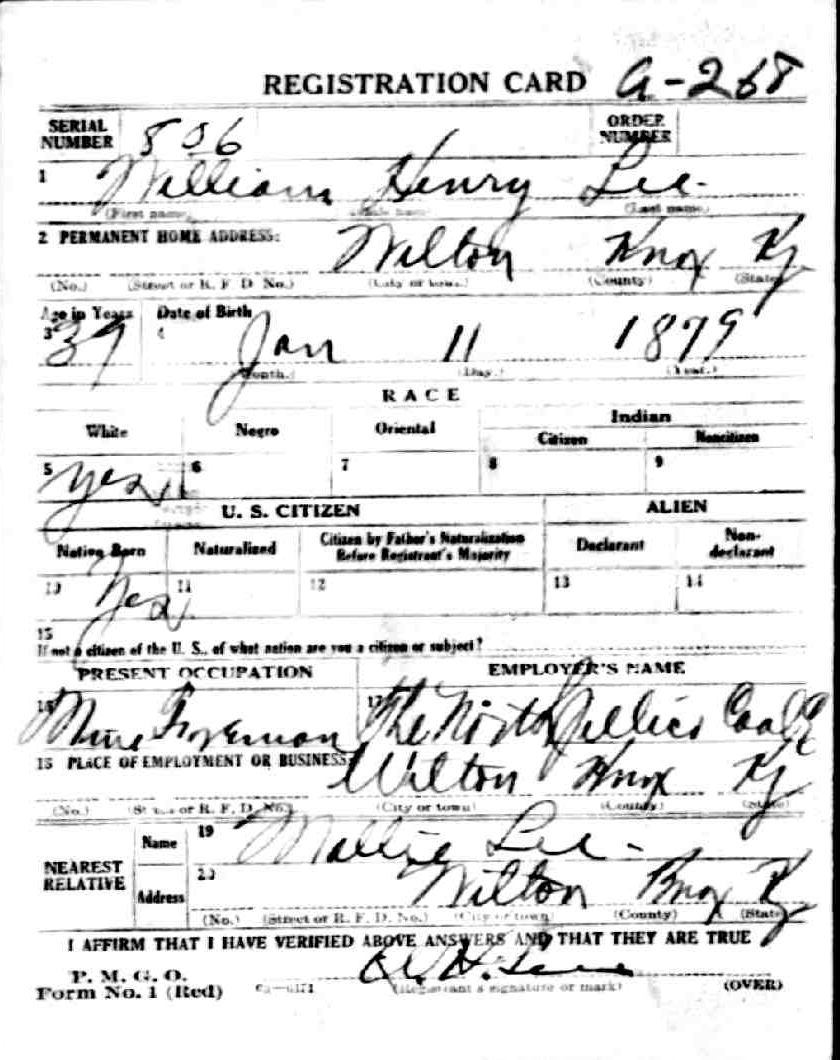 REGISTRATION CARD A-268
SERIAL NUMBER 506 ORDER NUMBER
1 William Henry Lee
(First name) (Middle name) (Last name)
2 PERMANENT HOME ADDRESS: Wilton Knox Ky
(No.) (Street or R. F. D. No.) (City or town) (County) (State)
Age in Years Date of Birth
3 39 4 Jan 11 1879
(Month.) (Day.) (Year.)
RACE
White Negro Oriental Indian
Citizen Noncitizen
5 Yes 6 7 8 9
U. S. CITIZEN ALIEN
Native Born Naturalized Citizen by Father's Naturalization Before Registrant's Majority Declarant Non-declarant
10 Yes 11 12 13 14
15
If not a citizen of the U. S., of what nation are you a citizen or subject?
PRESENT OCCUPATION EMPLOYER'S NAME
16 Mine Foreman 17 The North Jellico Coal Co
18 PLACE OF EMPLOYMENT OR BUSINESS: Wilton Knox Ky
(No.) (Street or R. F. D. No.) (City or town) (County) (State)
NEAREST RELATIVE Name 19 Mollie Lee
Address 20 Wilton Knox Ky
(No.) (Street or R. F. D. No.) (City or town) (County) (State)
I AFFIRM THAT I HAVE VERIFIED ABOVE ANSWERS AND THAT THEY ARE TRUE
P. M. G. O.
Form No. 1 (Red) (Registrant's signature or mark) (OVER)